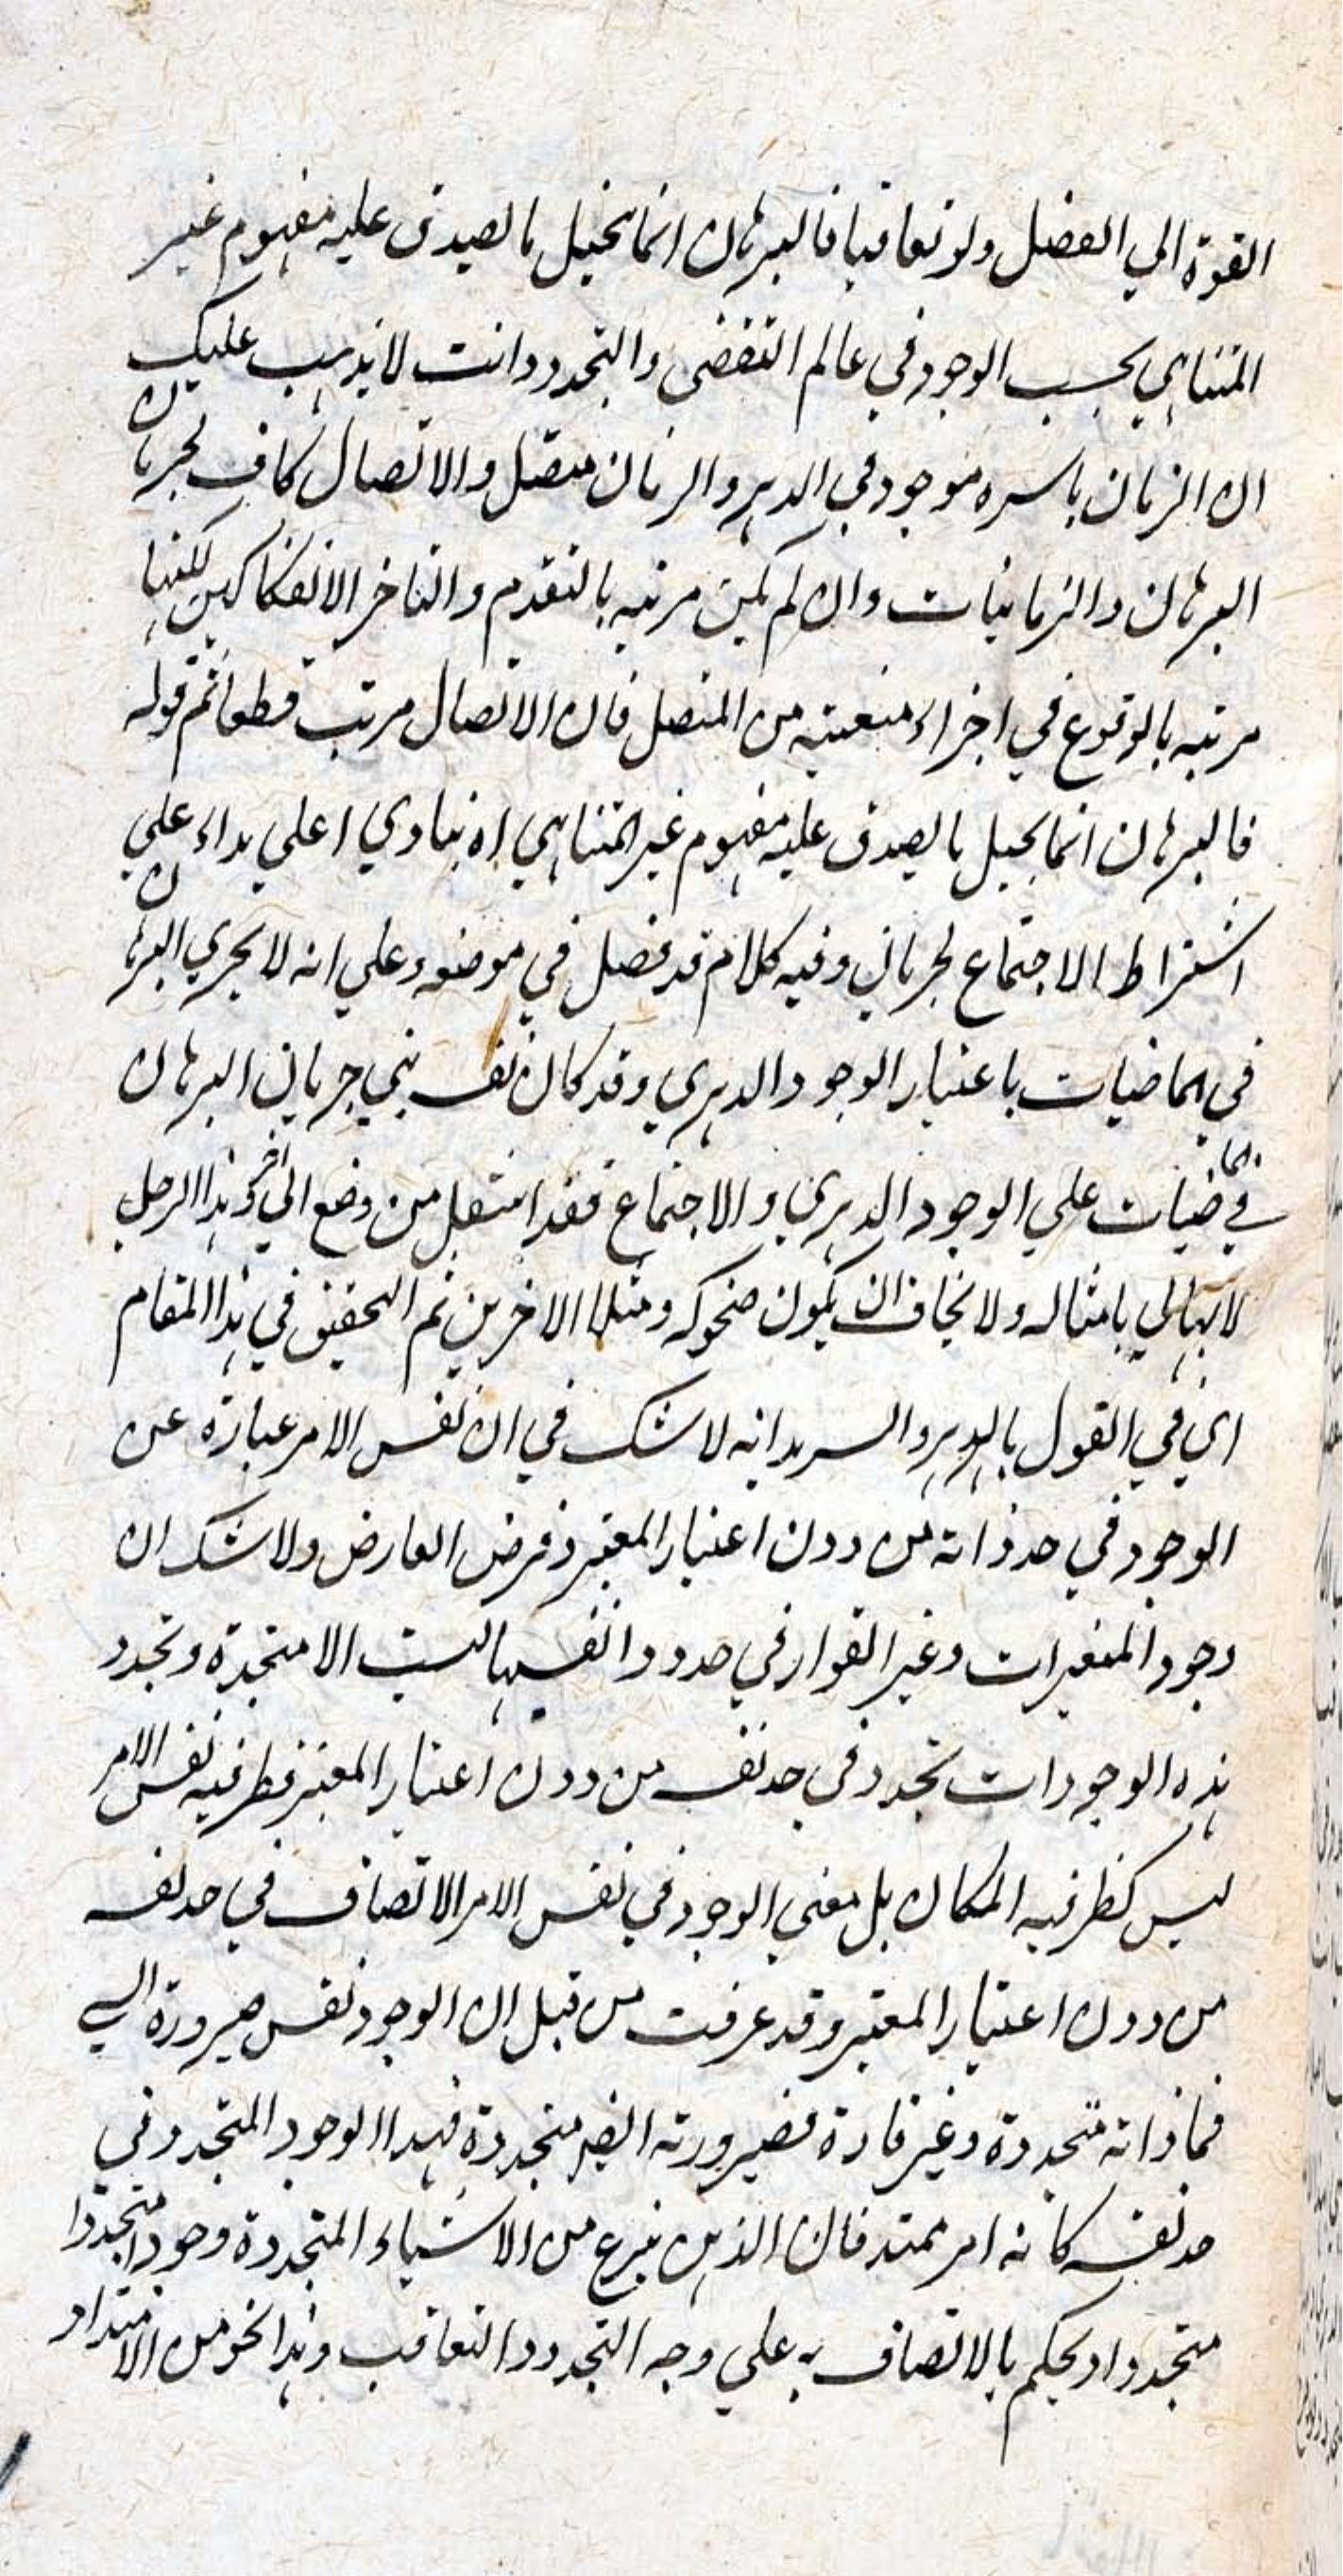 القوة الي الفضل ولو تعاقبا فالبرهان انما يحيل ما يصدق عليه مفهوم غير
المتناهي بحسب الوجود في عالم التقضي والتجدد وانت لا يذهب عليك
ان الزمان باسره موجود في الدهر والزمان متصل والاتصال كاف لجريان
البرهان والزمانيات وان لم يكن مرتبه بالتقدم والتاخر الانفكاكيين لكنها
مرتبه بالوقوع في اجزاء معينه من المتصل فان الاتصال مرتب قطعا ثم قوله
فالبرهان انما يحيل ما يصدق عليه مفهوم غير المتناهي اه ينادي اعلي نداء علي
اشتراط الاجتماع لجريانه وفيه كلام قد فصل في موضعه وعلي انه لا يجري البرهان
في الماضيات باعتبار الوجود الدهري وقد كان نفسه بني جريان البرهان
في الماضيات علي الوجود الدهري والاجتماع فقد انتقل من وضع الي اخر وهذا الرجل
لا يبالي بامثاله ولا يخاف ان يكون ضحوكه ومثلا للاخرين ثم التحقيق في هذا المقام
اي في القول بالدهر والسرمد انه لا شك في ان نفس الامر عبارة عن
الوجود في حد ذاته من دون اعتبار المعتبر وفرض الفارض ولا شك ان
وجود المتغيرات وغير القوار في حدود انفسها ليست الا متجددة وتجدد
هذه الوجودات تجدد في حد نفسه من دون اعتبار المعتبر فظرفيه نفس الامر
ليس كظرفيه المكان بل معني الوجود في نفس الامر الاتصاف في حد نفسه
من دون اعتبار المعتبر وقد عرفت من قبل ان الوجود نفس صيرورة الشي
فما ذاته متجددة وغير قارة فصيرورته ايضا متجددة فهذا الوجود المتجدد في
حد نفسه كانه امر ممتد فان الذهن ينزع من الاشياء المتجددة وجودا متجددا
متجددا ويحكم بالاتصاف به علي وجه التجدد والتعاقب وهذا نحو من الامتداد